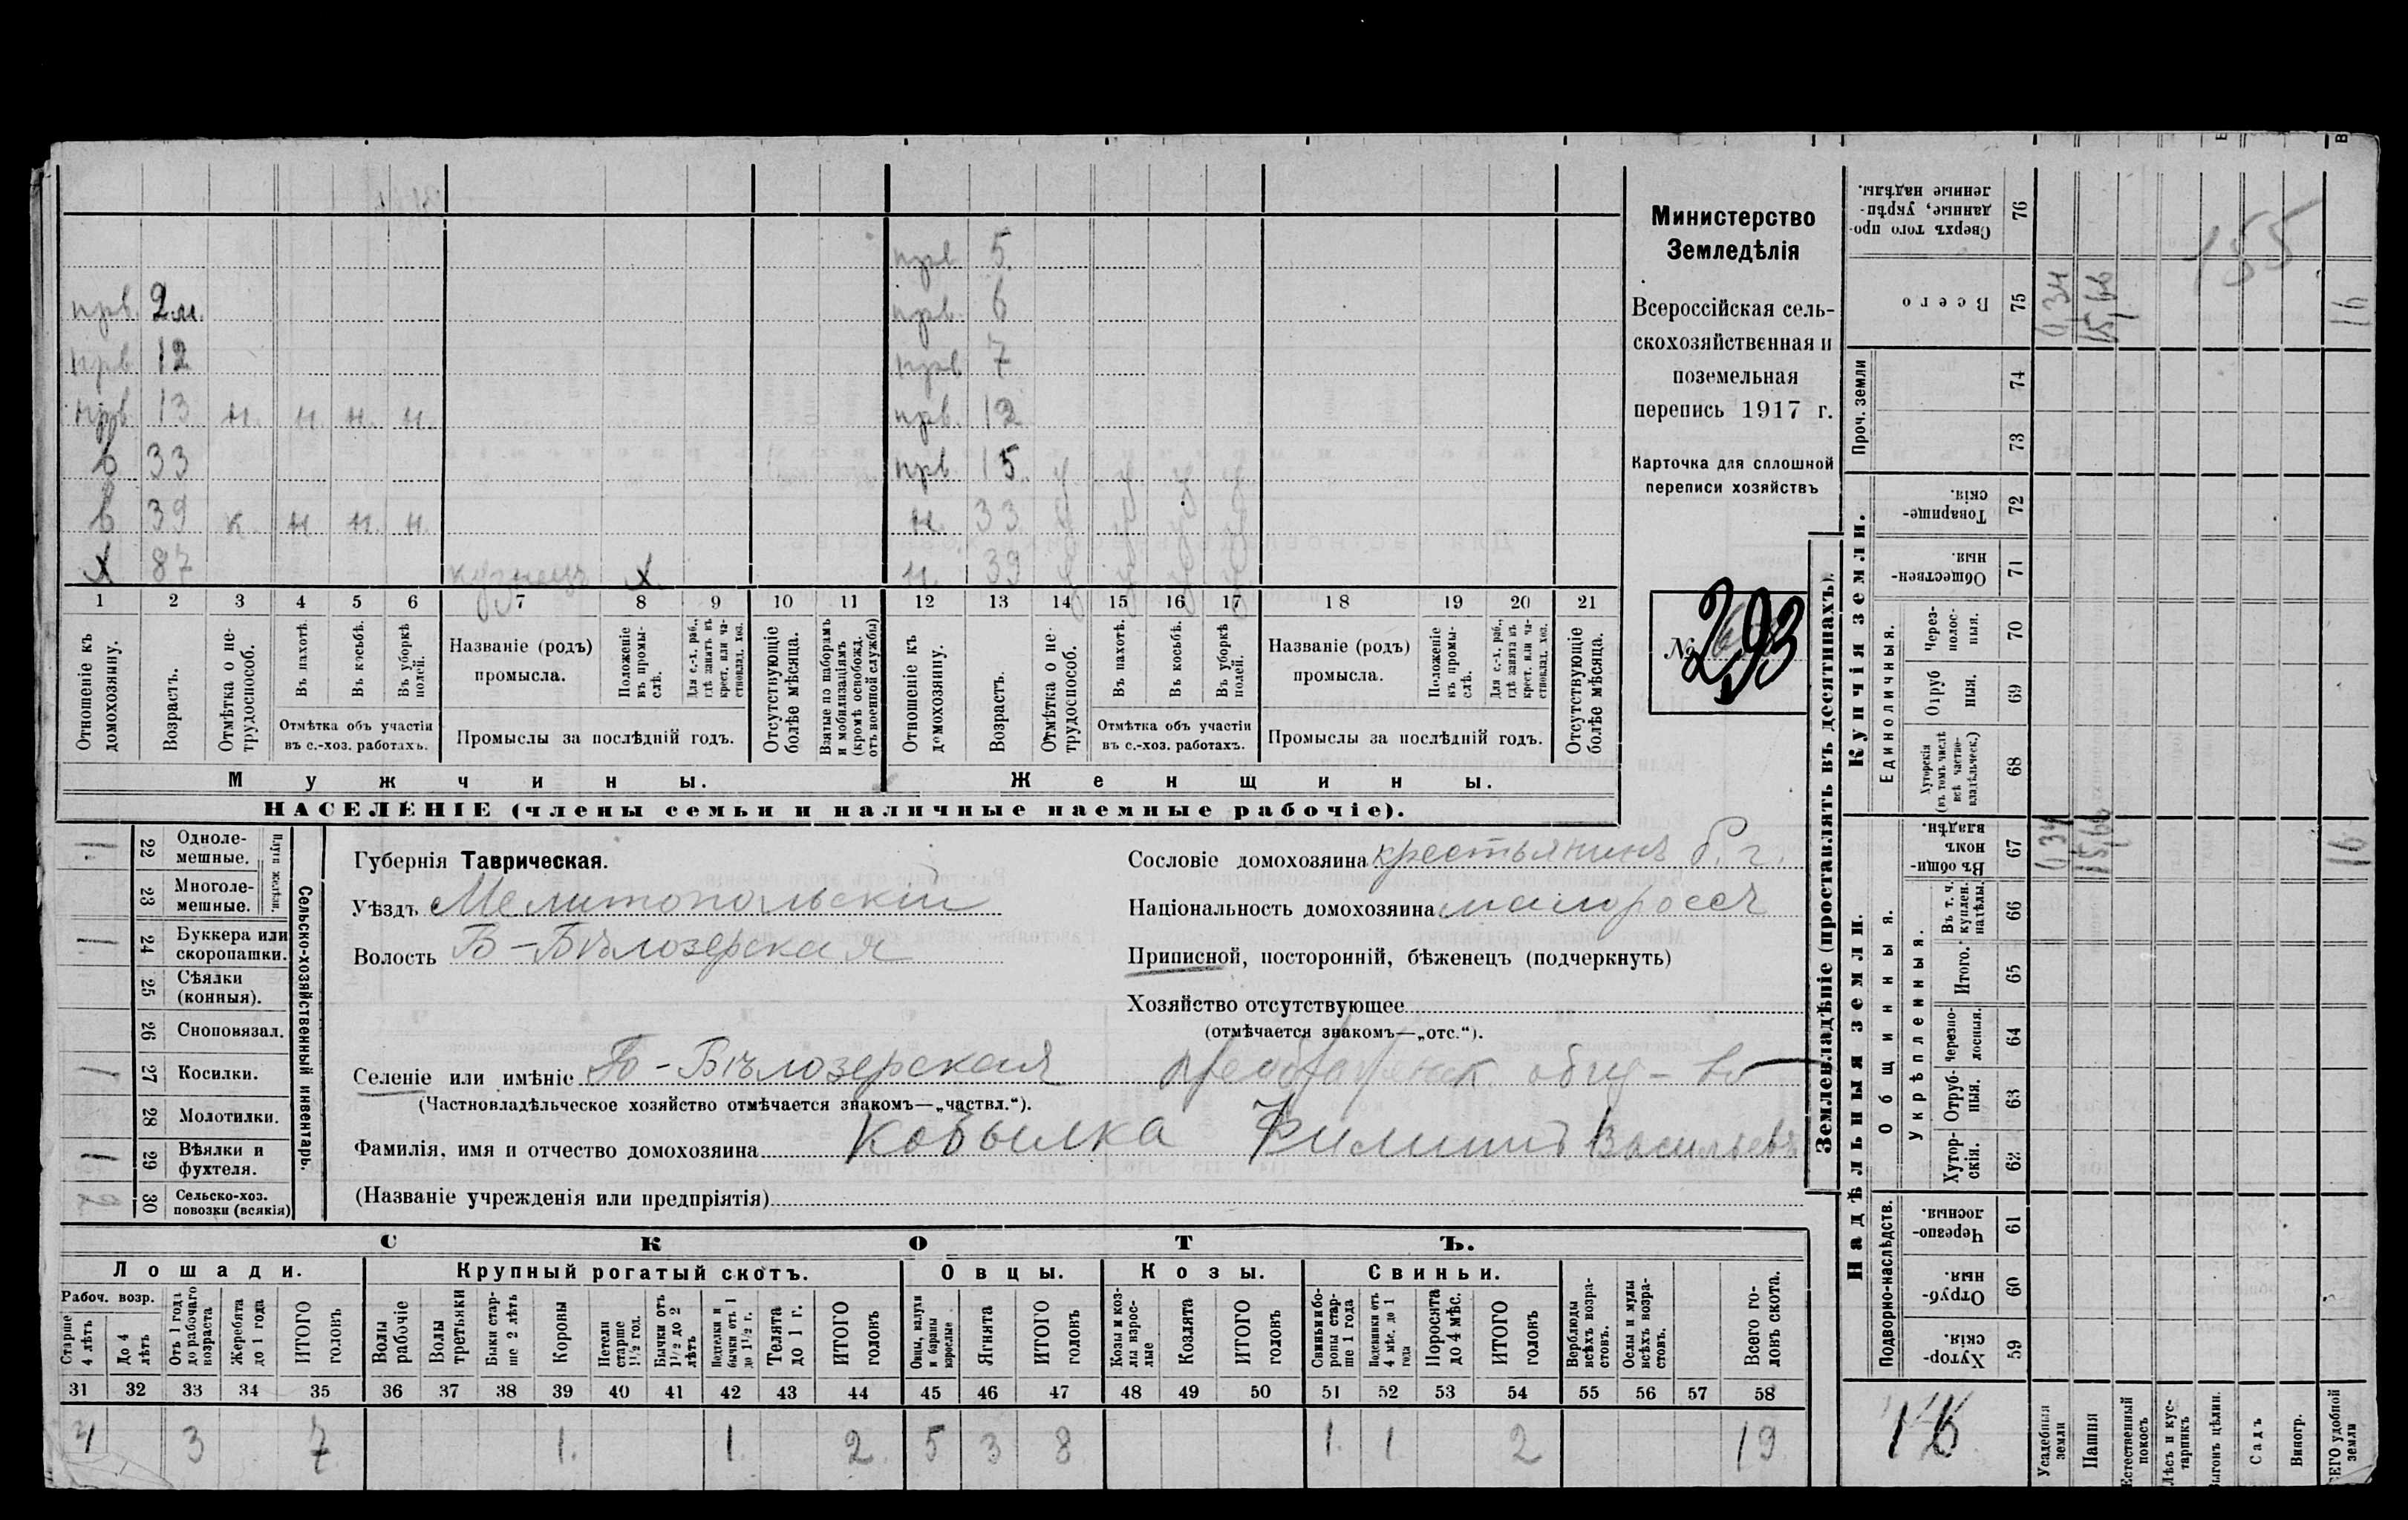 прв. 5.
прв. 2 м. прв. 6
прв. 12 прв. 7
прв. 13 н. н. н. н. прв. 12
в 33 прв. 15 у у у у
в 39 к. н. н. н. н. 33 у у у у
х 87 кузнецъ х. н. 39 у у у у
1 2 3 4 5 6 7 8 9 10 11 12 13 14 15 16 17 18 19 20 21
Отношеніе къ домохозяину.
Возрастъ.
Отмѣтка о не-трудоспособ.
Въ пахотѣ.
Въ косьбѣ.
Въ уборкѣ полей.
Отмѣтка объ участіи въ с.-хоз. работахъ.
Названіе (родъ) промысла.
Положеніе въ промы-слѣ.
Для с.-х. раб., гдѣ занятъ въ крест. или ча-стновлад. хоз.
Промыслы за послѣдній годъ.
Отсутствующіе болѣе мѣсяца.
Взятые по наборамъ и мобилизаціямъ (кромѣ освобожд. отъ военной службы)
Отношеніе къ домохозяину.
Возрастъ.
Отмѣтка о не-трудоспособ.
Въ пахотѣ.
Въ косьбѣ.
Въ уборкѣ полей.
Отмѣтка объ участіи въ с.-хоз. работахъ.
Названіе (родъ) промысла.
Положеніе въ промы-слѣ.
Для с.-х. раб., гдѣ занята въ крест. или ча-стновлад. хоз.
Промыслы за послѣдній годъ.
Отсутствующіе болѣе мѣсяца.
Мужчины. Женщины.
НАСЕЛЕНІЕ (члены семьи и наличные наемные рабочіе).
Министерство
Земледѣлія
Всероссійская сель-
скохозяйственная и
поземельная
перепись 1917 г.
Карточка для сплошной
переписи хозяйствъ
№ 293
Сельско-хозяйственный инвентарь.
Плуги желѣзн.
22 Одноле-мешные. 1
23 Многоле-мешные.
24 Буккера или скоропашки. 1
25 Сѣялки (конныя).
26 Сноповязал.
27 Косилки. 1
28 Молотилки.
29 Вѣялки и фухтеля. 1
30 Сельско-хоз. повозки (всякія) 2
Губернія Таврическая.
Уѣздъ Мелитопольскій
Волость Б-Бѣлозерская
Сословіе домохозяина крестьянинъ б. г.
Національность домохозяина малороссъ
Приписной, посторонній, бѣженецъ (подчеркнуть)
Хозяйство отсутствующее
(отмѣчается знакомъ—„отс.“).
Селеніе или имѣніе Б-Бѣлозерская общ-во
(Частновладѣльческое хозяйство отмѣчается знакомъ—„частвл.“).
Фамилія, имя и отчество домохозяина Ковылка Филиппъ Васильевъ
(Названіе учрежденія или предпріятія)
СКОТЪ.
Лошади. Крупный рогатый скотъ. Овцы. Козы. Свиньи.
Рабоч. возр.
Старше 4 лѣтъ
До 4 лѣтъ
Отъ 1 года до рабочаго возраста
Жеребята до 1 года
ИТОГО головъ
Волы рабочіе
Волы третьяки
Быки стар-ше 2 лѣтъ
Коровы
Нетели старше 1½ год.
Бычки отъ 1½ до 2 лѣтъ
Подтелки и бычки отъ 1 до 1½ г.
Телята до 1 г.
ИТОГО головъ
Овцы, валухи и бараны взрослые
Ягнята
ИТОГО головъ
Козы и коз-лы взрос-лые
Козлята
ИТОГО головъ
Свиньи и бо-ровы стар-ше 1 года
Подсвинки отъ 4 мѣс. до 1 года
Поросята до 4 мѣс.
ИТОГО головъ
Верблюды всѣхъ возра-стовъ.
Ослы и мулы всѣхъ возра-стовъ.
Всего го-ловъ скота.
31 32 33 34 35 36 37 38 39 40 41 42 43 44 45 46 47 48 49 50 51 52 53 54 55 56 57 58
4 3 7 1. 1. 2. 5 3 8 1. 1 2 19
Землевладѣніе (проставлять въ десятинахъ).
Надѣльныя земли. Купчія земли.
Проч. земли
Подворно-наслѣдств.
Общинныя.
Укрѣпленныя.
Единоличныя.
Сверхъ того про-данные, укрѣп-ленные надѣлы. 76
Всего 75 0,34 15,66 16
74
73
Товарище-скія. 72
Обществен-ныя. 71
Через-полос-ныя. 70
Отруб-ныя. 69
Хуторскія (въ томъ числѣ всѣ частно-владѣльческ.) 68
Въ общи-номъ владѣн. 67 0,34 15,66 16
Въ т. ч. куплен. надѣлы. 66
Итого. 65
Черезпо-лосныя. 64
Отруб-ныя. 63
Хутор-скія. 62
Черезпо-лосныя. 61
Отруб-ныя. 60
Хутор-скія. 59
155
16
Усадебная земля
Пашня
Естественный покосъ
Лѣсъ и кус-тарникъ
Выгонъ цѣлин.
Садъ
Виногр.
ВСЕГО удобной земли